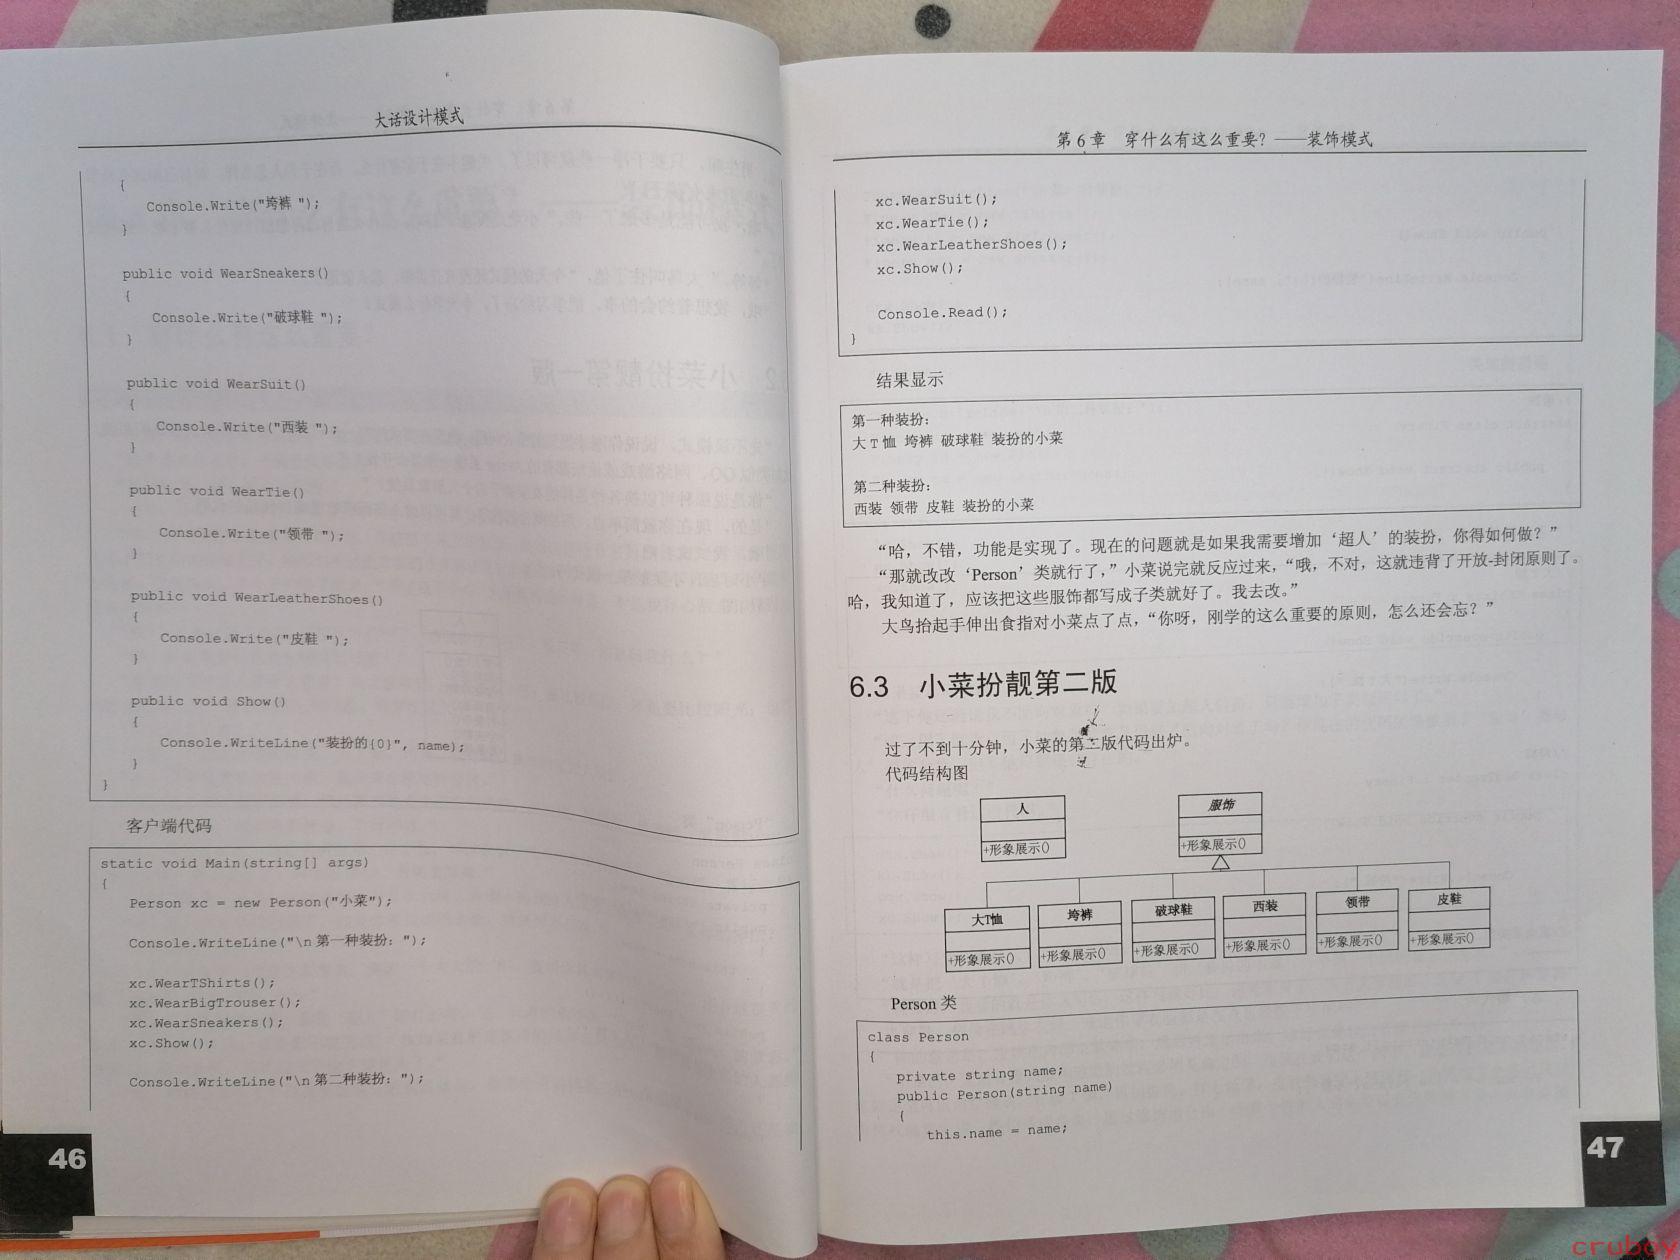 大话设计模式
{
Console.Write("垮裤 ");
}
public void WearSneakers()
{
Console.Write("破球鞋 ");
}
public void WearSuit()
{
Console.Write("西装 ");
}
public void WearTie()
{
Console.Write("领带 ");
}
public void WearLeatherShoes()
{
Console.Write("皮鞋 ");
}
public void Show()
{
Console.WriteLine("装扮的{0}", name);
}
}
客户端代码
static void Main(string[] args)
{
Person xc = new Person("小菜");
Console.WriteLine("\n 第一种装扮：");
xc.WearTShirts();
xc.WearBigTrouser();
xc.WearSneakers();
xc.Show();
Console.WriteLine("\n 第二种装扮：");
46
第 6 章 穿什么有这么重要？——装饰模式
xc.WearSuit();
xc.WearTie();
xc.WearLeatherShoes();
xc.Show();
Console.Read();
}
结果显示
第一种装扮：
大 T 恤 垮裤 破球鞋 装扮的小菜
第二种装扮：
西装 领带 皮鞋 装扮的小菜
“哈，不错，功能是实现了。现在的问题就是如果我需要增加‘超人’的装扮，你得如何做？”
“那就改改‘Person’类就行了，”小菜说完就反应过来，“哦，不对，这就违背了开放-封闭原则了。
哈，我知道了，应该把这些服饰都写成子类就好了。我去改。”
大鸟抬起手伸出食指对小菜点了点，“你呀，刚学的这么重要的原则，怎么还会忘？”
6.3 小菜扮靓第二版
过了不到十分钟，小菜的第二版代码出炉。
代码结构图
人
+形象展示()
服饰
+形象展示()
大T恤
+形象展示()
垮裤
+形象展示()
破球鞋
+形象展示()
西装
+形象展示()
领带
+形象展示()
皮鞋
+形象展示()
Person 类
class Person
{
private string name;
public Person(string name)
{
this.name = name;
47
cruboy